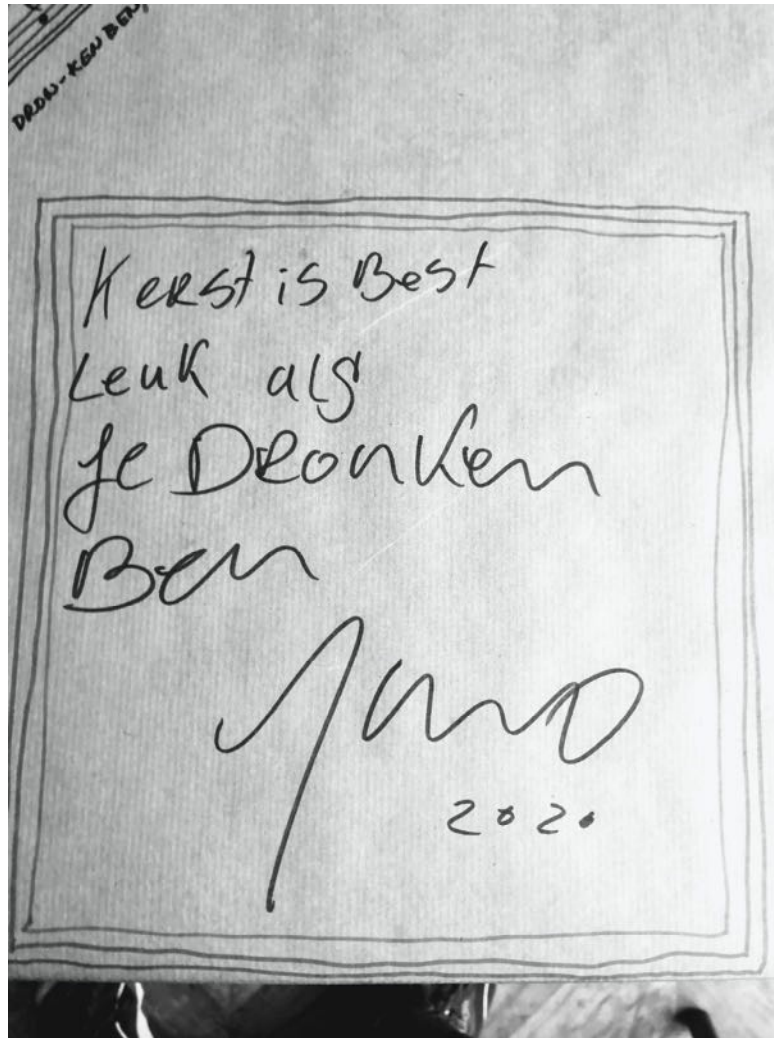 DRON-KEN BEN,
Kerst is Best
Leuk als
Je Dronken
Ben
2020